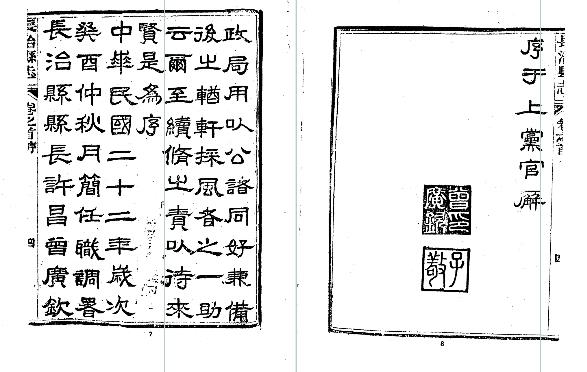 政局用以公諮同好兼備
後之輶軒採風者之一助
云爾至續脩之責以待來
賢是為序
中華民國二十二年歲次
癸酉仲秋月簡任職調署
長治縣縣長許昌曾廣欽
長治縣志 卷之首序 四
7
長治縣志 卷之首
序于上黨官廨
曾印
廣欽
8